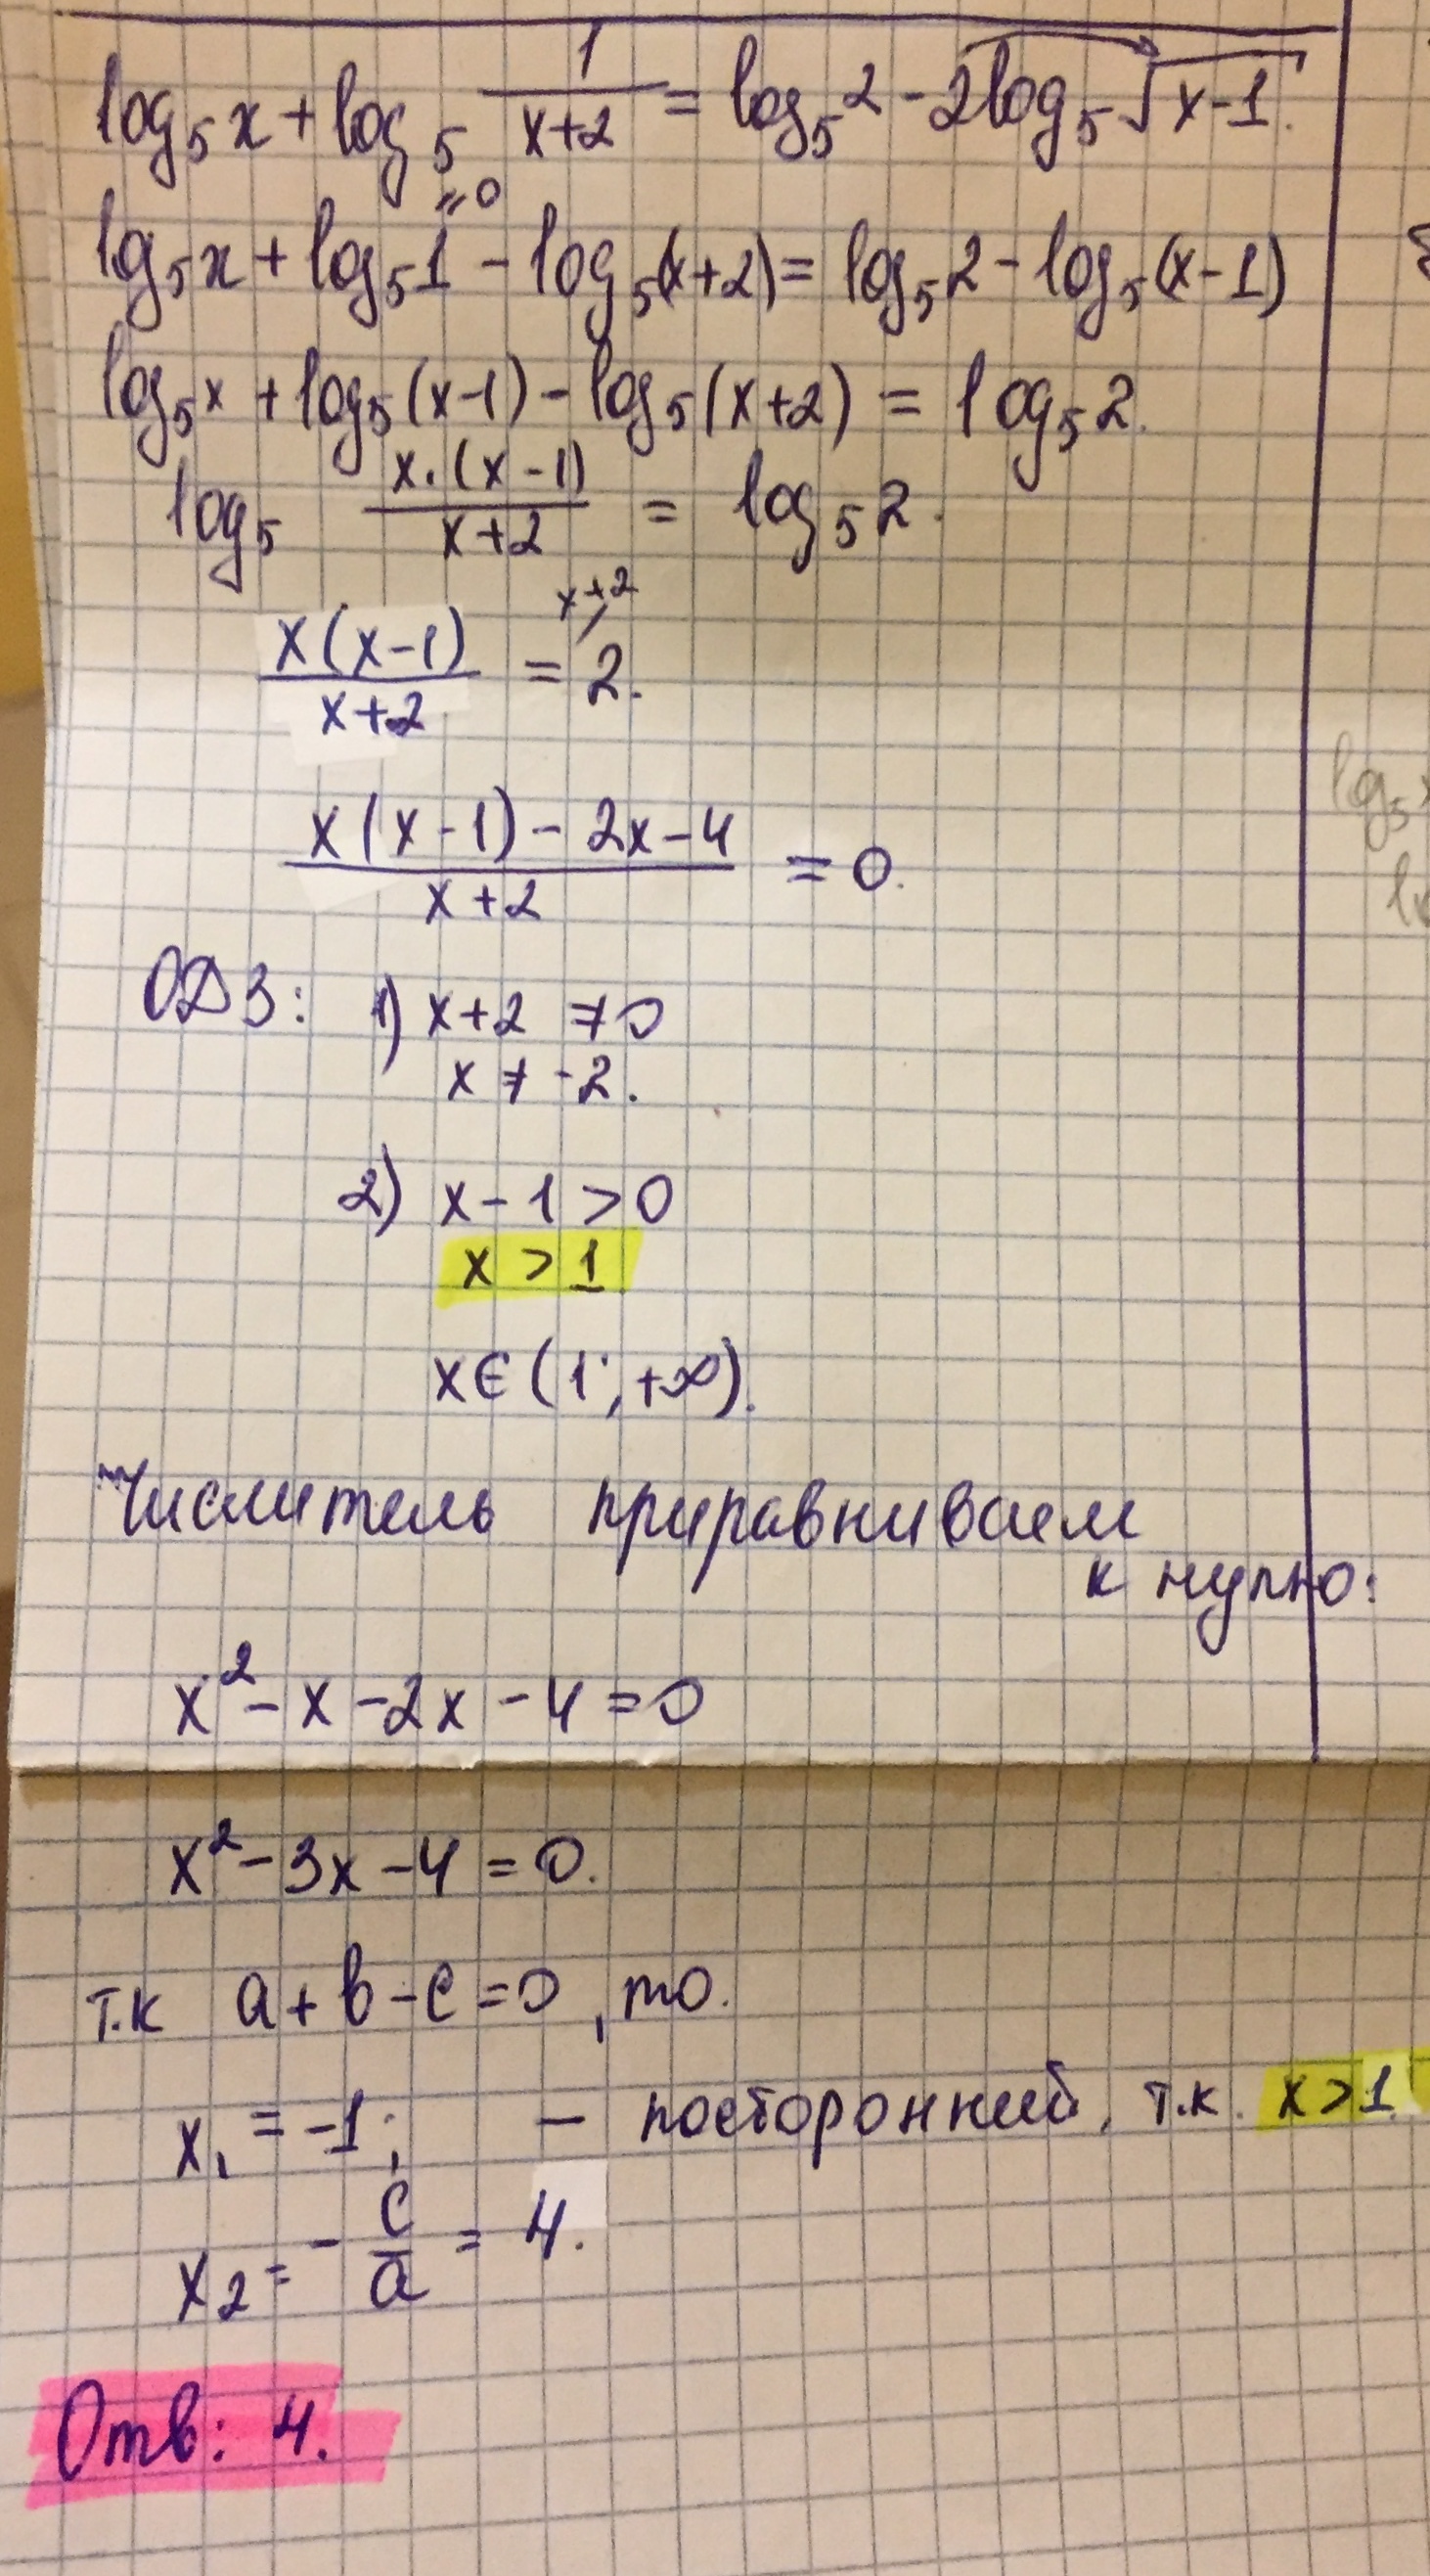 log₅x + log₅ 1/(x+2) = log₅2 - 2log₅√(x-1).
=0
log₅x + log₅1 - log₅(x+2) = log₅2 - log₅(x-1)
log₅x + log₅(x-1) - log₅(x+2) = log₅2.
log₅ x·(x-1)/(x+2) = log₅2.
x+2
x(x-1)/(x+2) = 2.
(x(x-1) - 2x-4)/(x+2) = 0.
ОДЗ: 1) x+2 ≠0
x ≠ -2.
2) x-1 >0
x > 1
x∈(1; +∞).
Числитель приравниваем
к нулю:
x² - x - 2x - 4 = 0
x² - 3x - 4 = 0.
т.к a + b - c = 0, то.
x₁ = -1; – посторонний, т.к. x>1
x₂ = - c/a = 4.
Отв: 4.
log₅